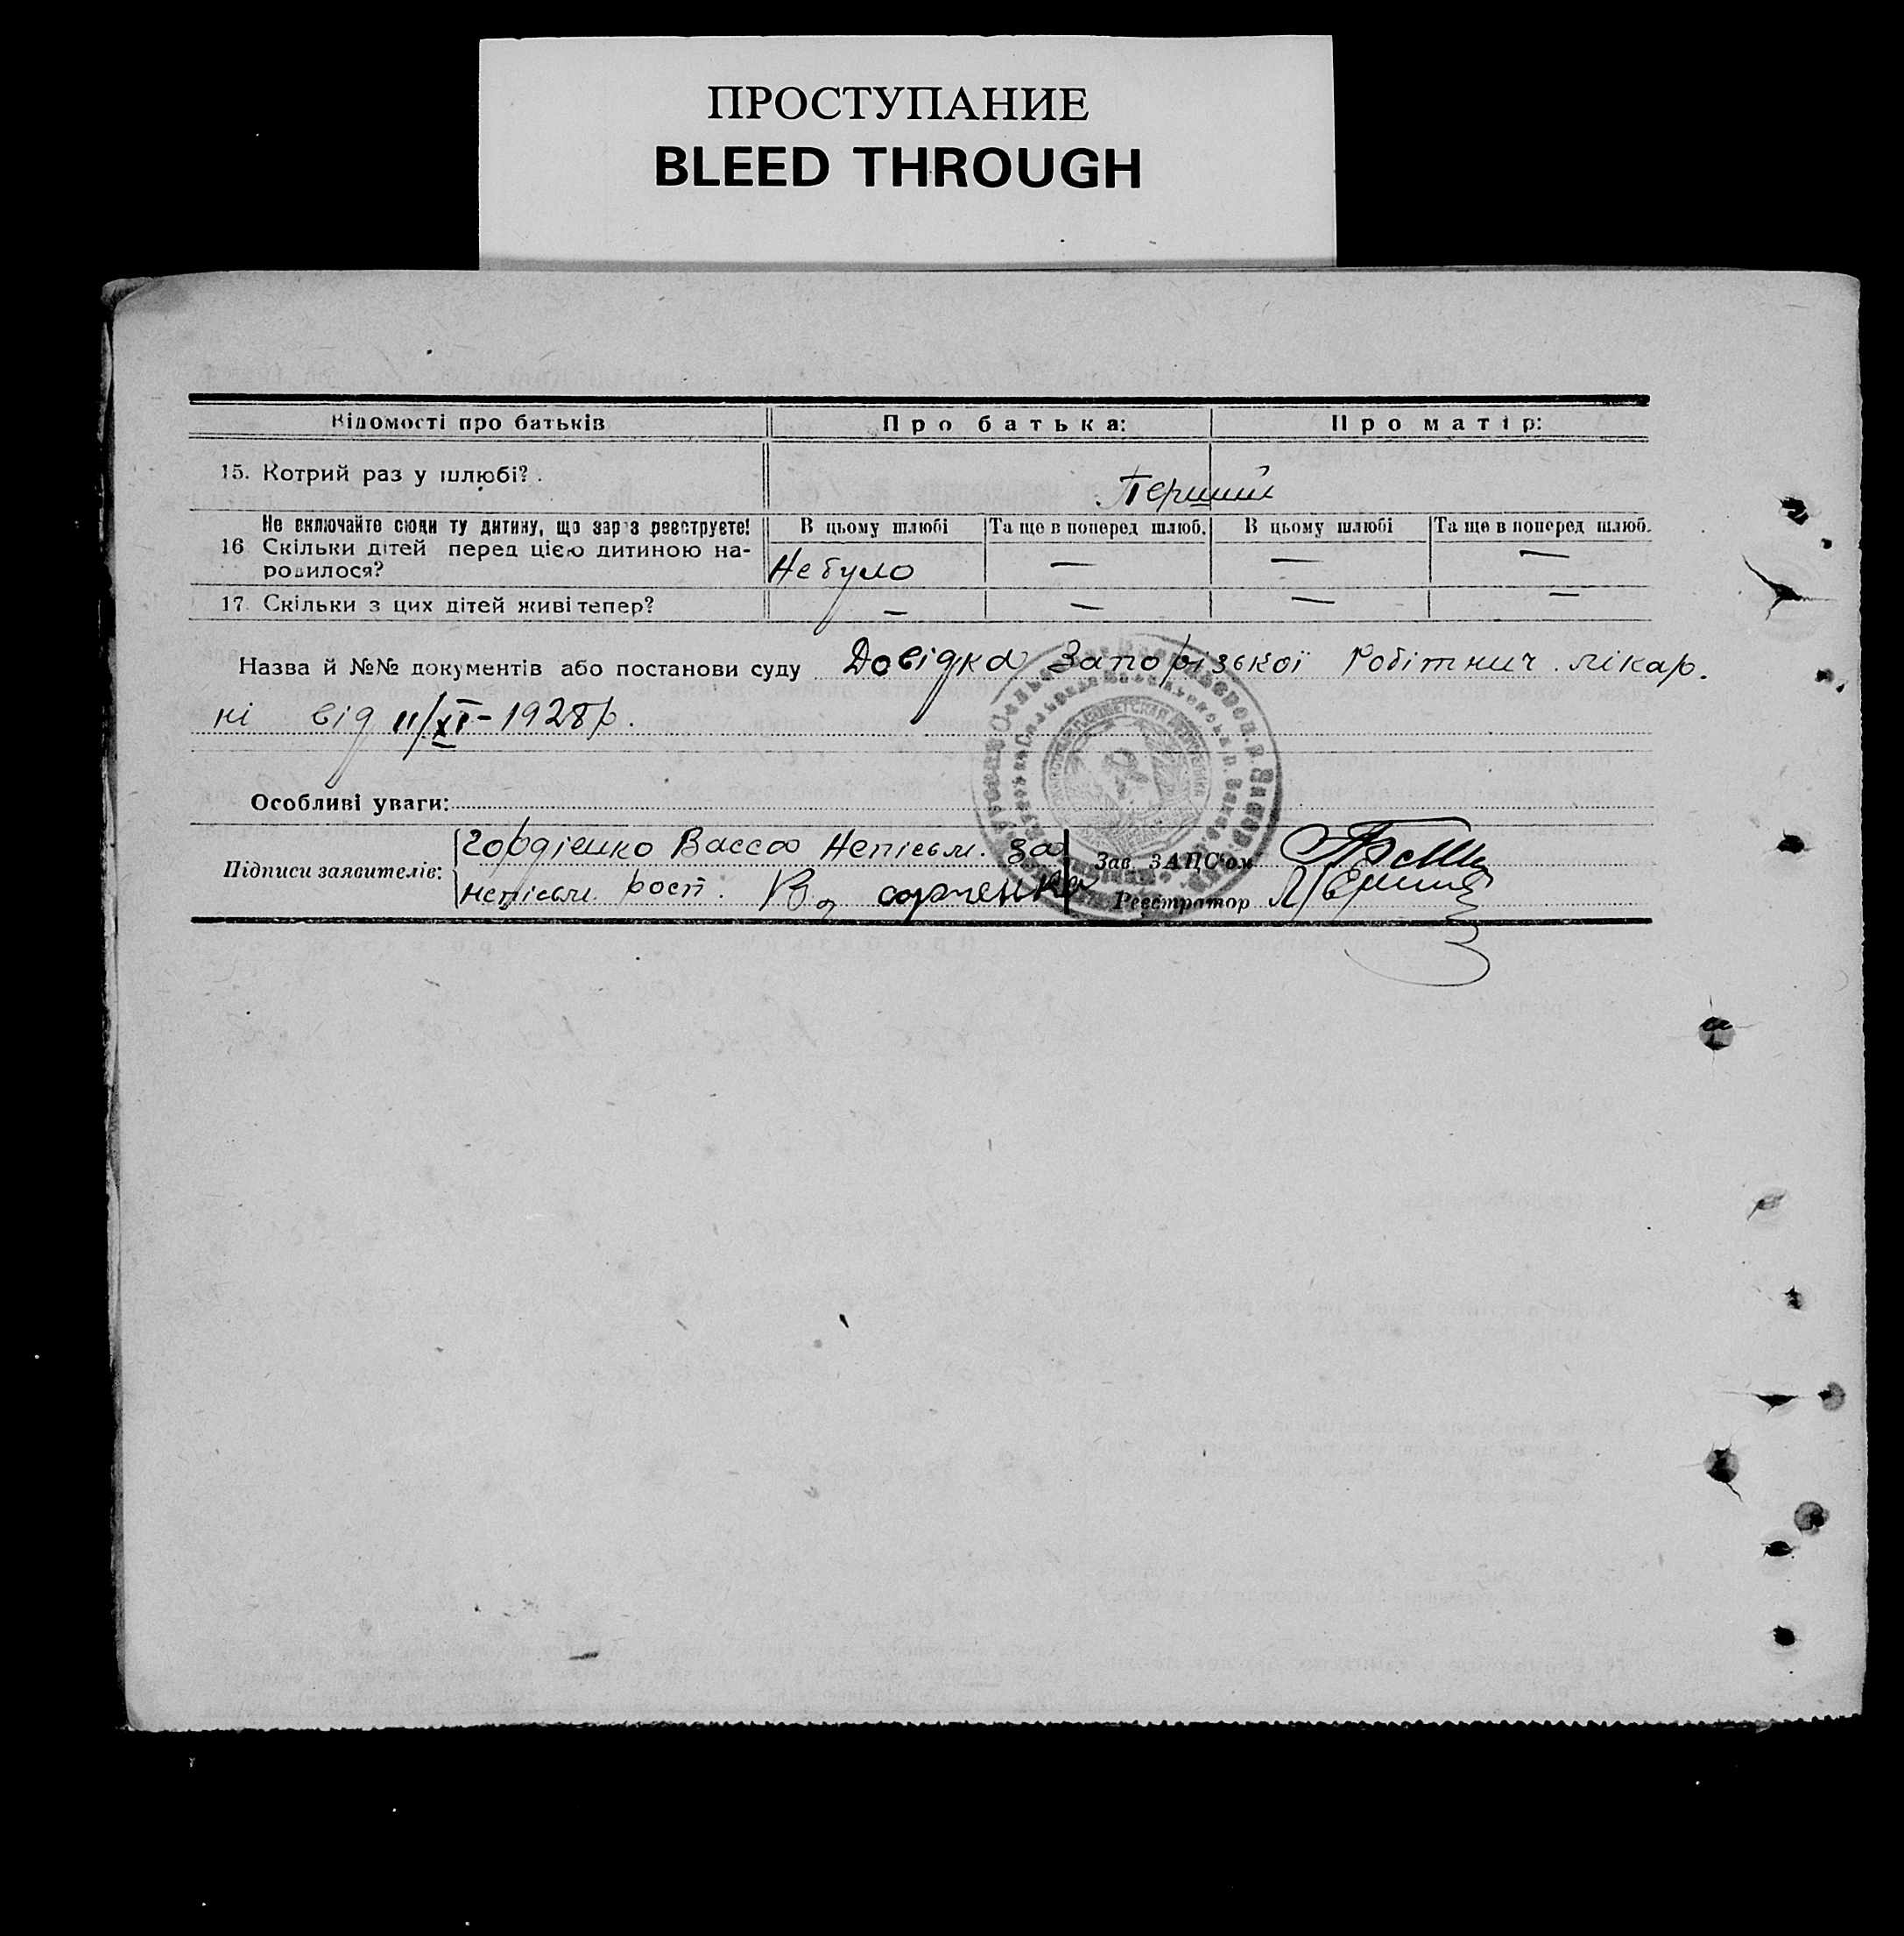 ПРОСТУПАНИЕ
BLEED THROUGH
Відомості про батьків Про батька: Про матір:
15. Котрий раз у шлюбі? Перший
Не включайте сюди ту дитину, що зараз реєструєте! В цьому шлюбі Та ще в поперед шлюб. В цьому шлюбі Та ще в поперед шлюб.
16 Скільки дітей перед цією дитиною на-
родилося? Не було — — —
17. Скільки з цих дітей живі тепер? — — — —
Назва й №№ документів або постанови суду Довідка Запорізької Робітнич. лікар.
ні від 11/XI-1928р.
Особливі уваги:
Підписи заявителів: Гордієнко Васса Неписьм. за
неписьм. рост.
Зав. ЗАПС'ом
Реєстратор